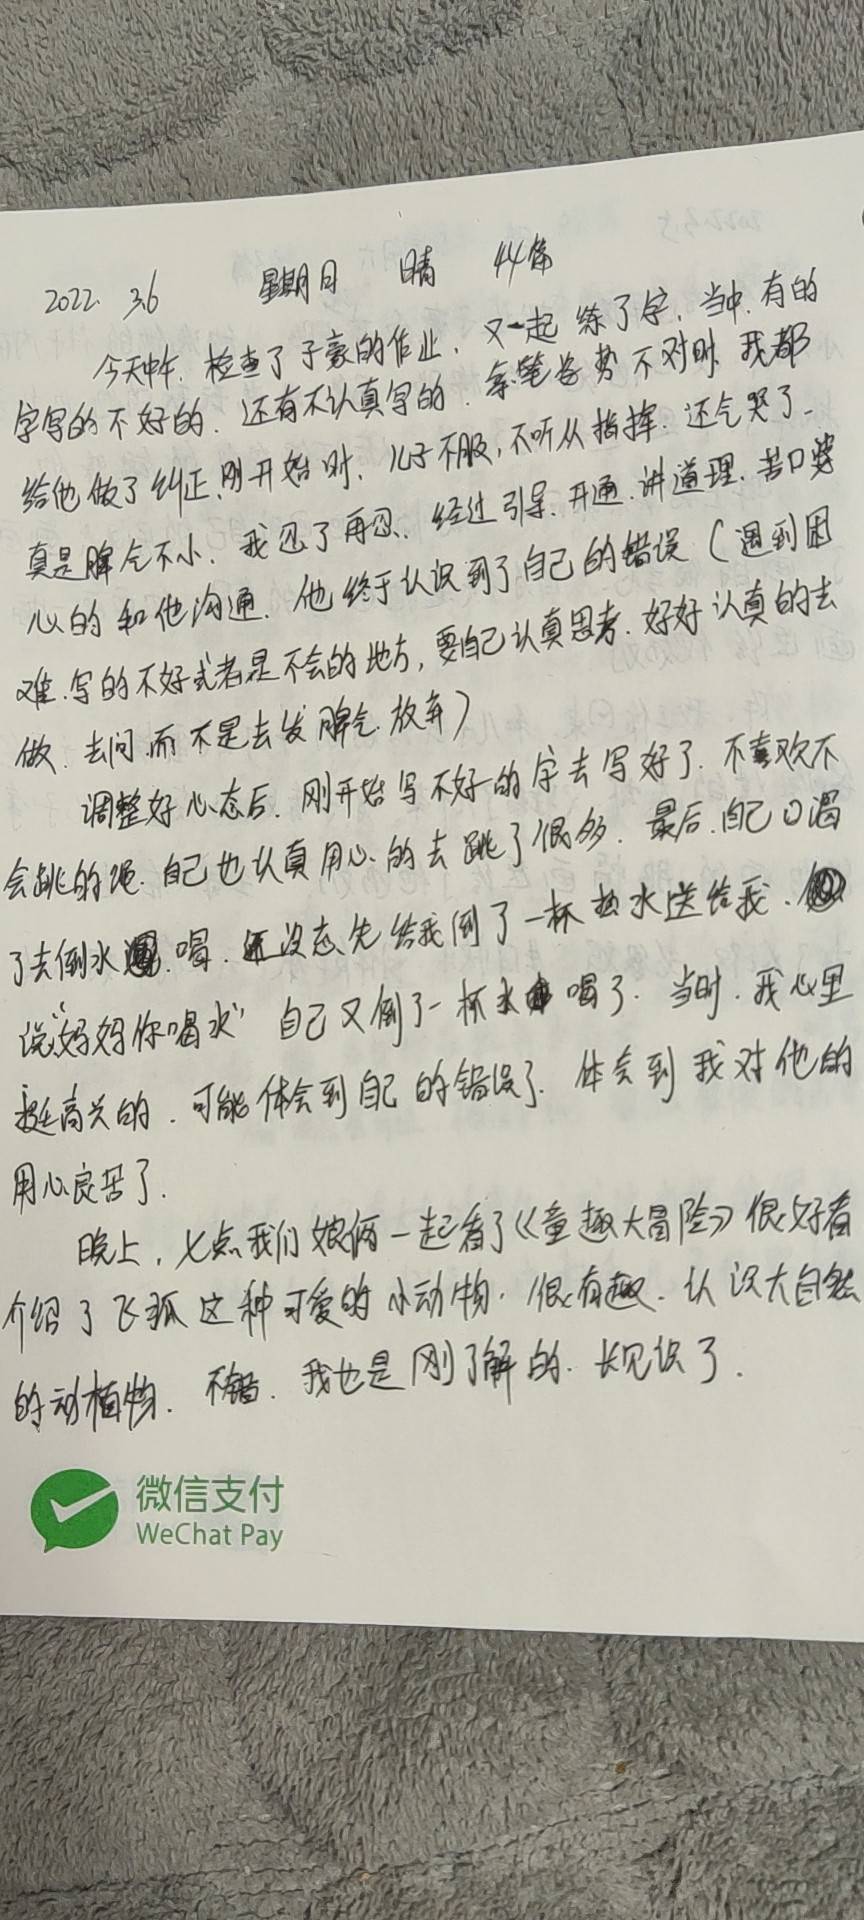 2022. 3.6 星期日 晴 44篇
今天中午.检查了子豪的作业.又一起练了字.当中.有的
字写的不好的.还有不认真写的.拿笔姿势不对时.我都
给他做了纠正.刚开始时.儿子不服,不听从指挥.还气哭了.
真是脾气不小.我忍了再忍.经过引导.开通.讲道理.苦口婆
心的和他沟通.他终于认识到了自己的错误(遇到困
难.写的不好或者是不会的地方,要自己认真思考.好好认真的去
做.去问而不是去发脾气.放弃)
调整好心态后.刚开始写不好的字去写好了.不喜欢不
会跳的绳.自己也认真用心的去跳了很多.最后.自己口渴
了去倒水喝.还没忘先给我倒了一杯热水送给我.
说"妈妈你喝水"自己又倒了一杯水喝了.当时.我心里
挺高兴的.可能体会到自己的错误了.体会到我对他的
用心良苦了.
晚上,七点我们娘俩一起看了《童趣大冒险》很好看
介绍了飞狐这种可爱的小动物.很有趣.认识大自然
的动植物.不错.我也是刚了解的.长见识了.
微信支付
WeChat Pay